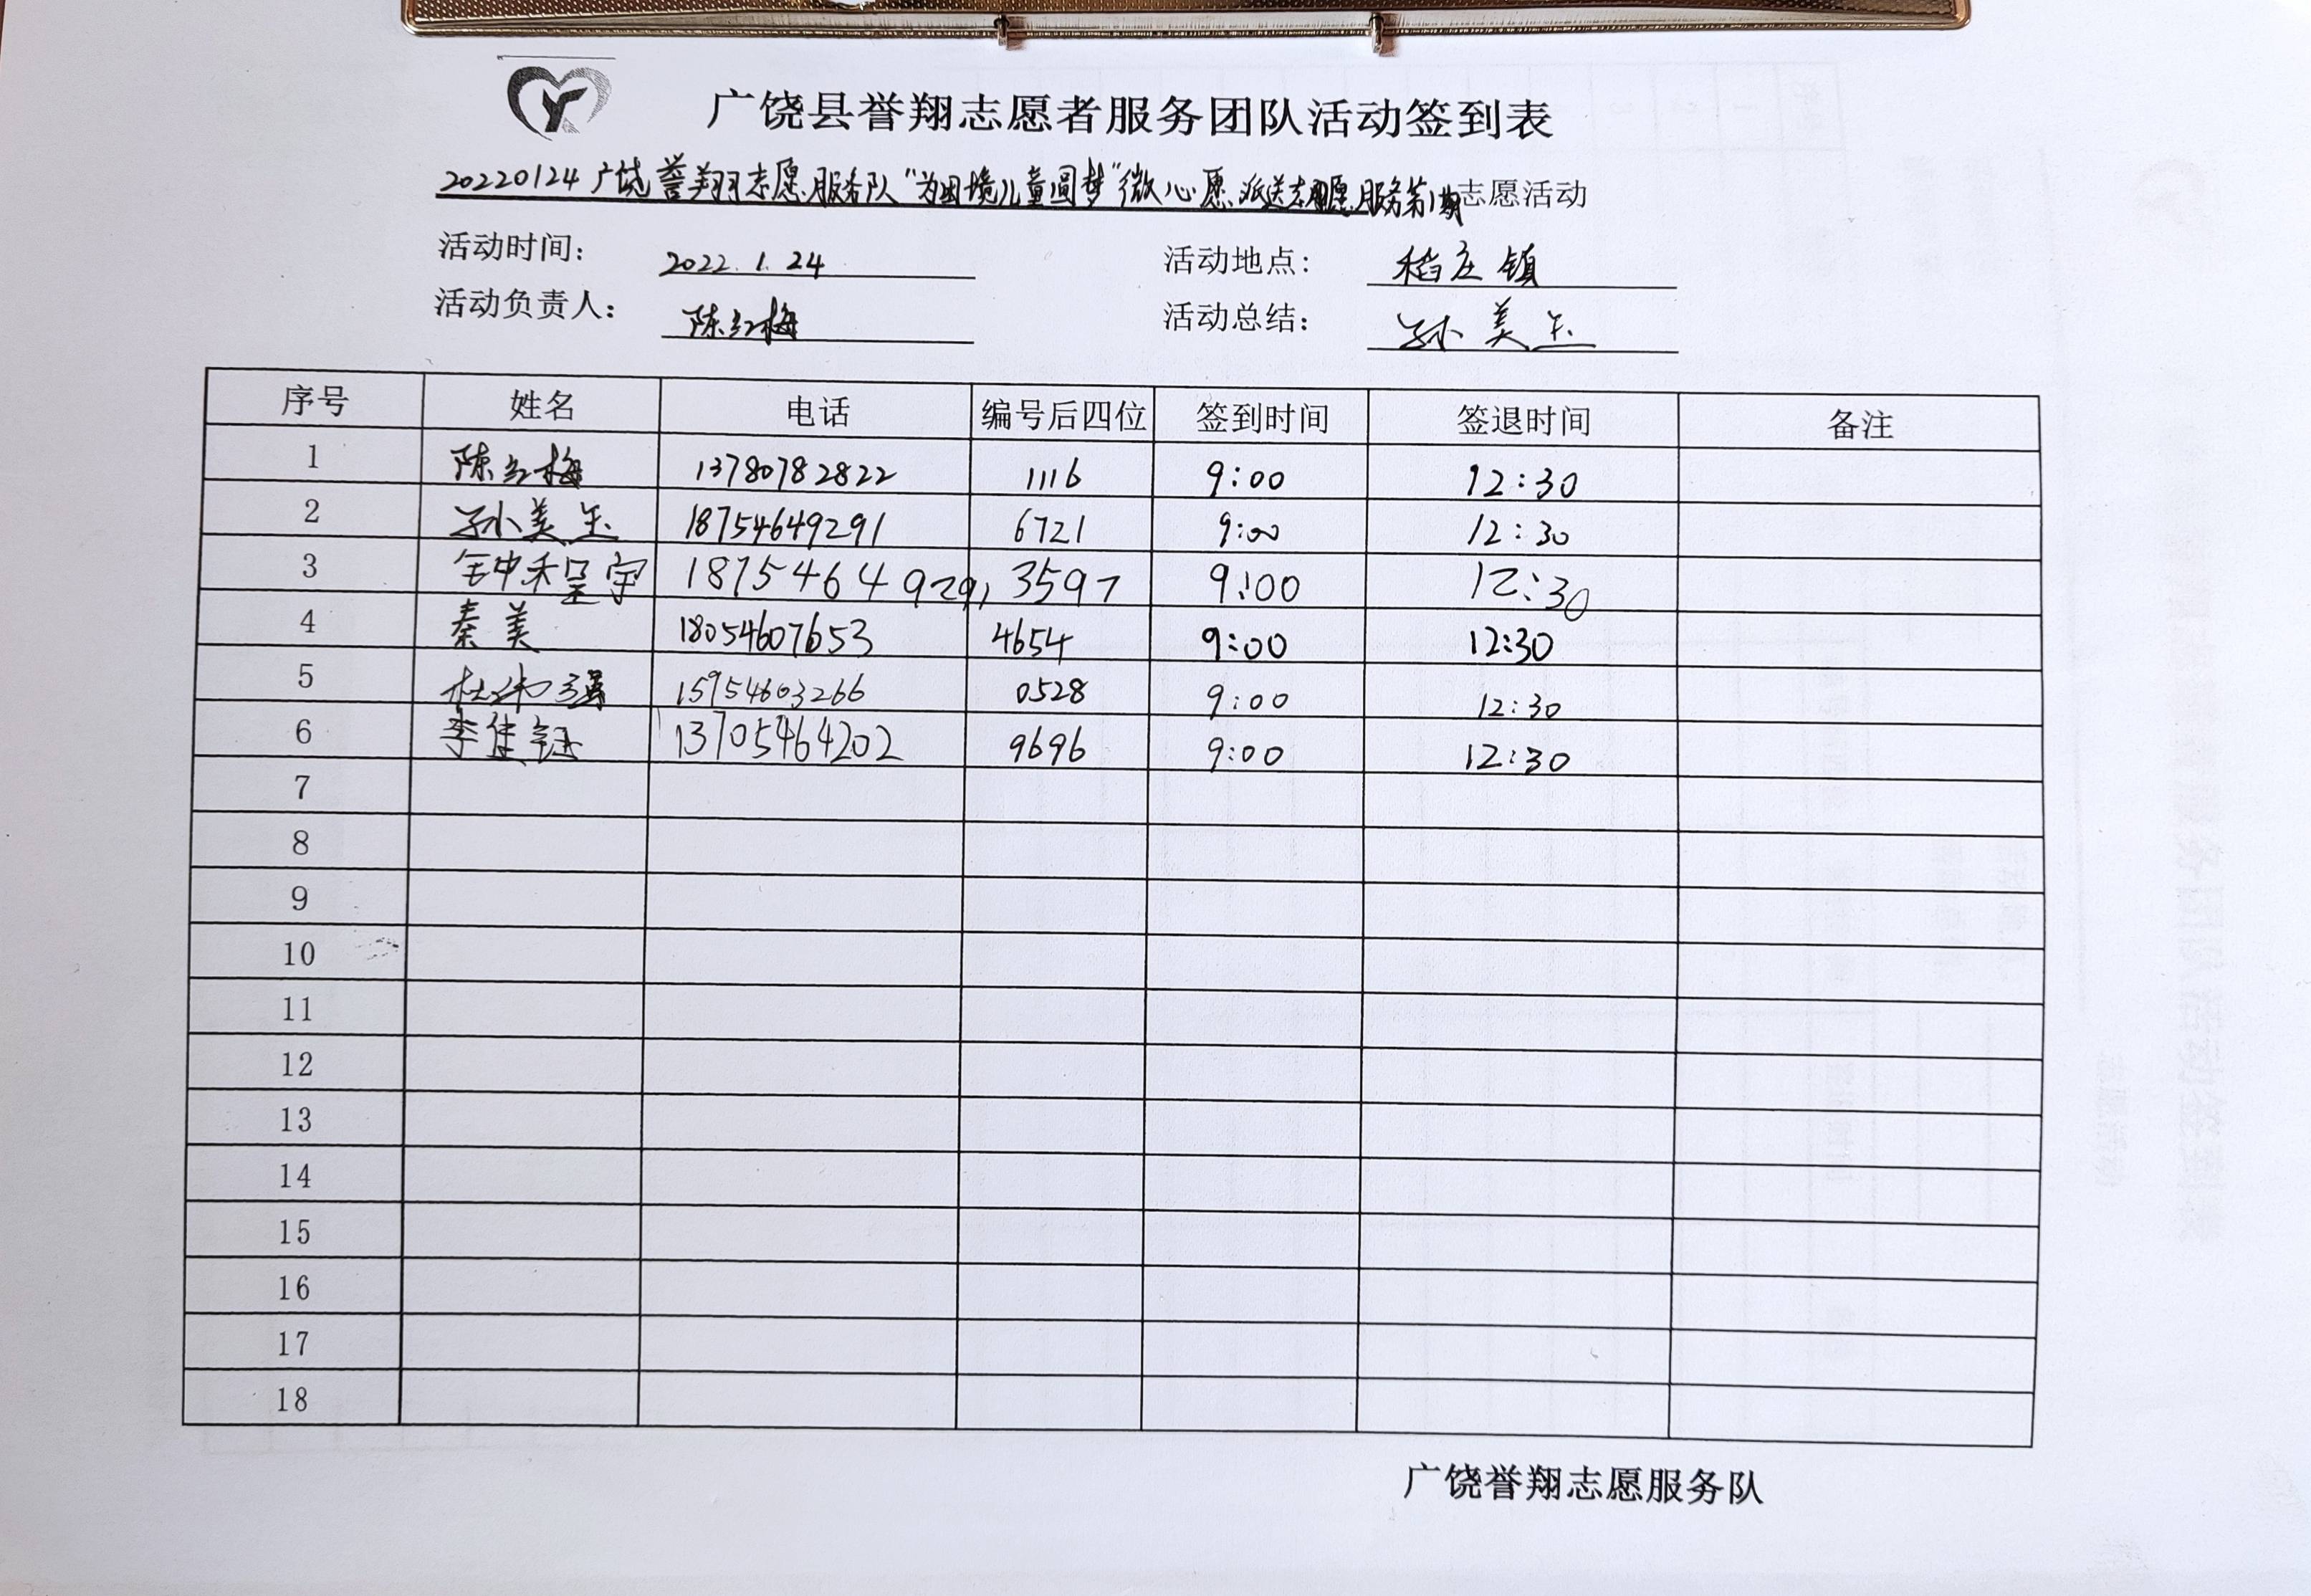 广饶县誉翔志愿者服务团队活动签到表
20220124广饶誉翔志愿服务队“为困境儿童圆梦”微心愿派送志愿服务第1期志愿活动
活动时间： 2022.1.24 活动地点： 稻庄镇
活动负责人： 陈红梅 活动总结： 孙美玉
序号 姓名 电话 编号后四位 签到时间 签退时间 备注
1 陈红梅 13780782822 1116 9:00 12:30
2 孙美玉 18754649291 6721 9:00 12:30
3 呈宇 18754649291 3597 9:00 12:30
4 秦美 18054607653 4654 9:00 12:30
5 杜沛强 15954603266 0528 9:00 12:30
6 李佳钰 13705464202 9696 9:00 12:30
7
8
9
10
11
12
13
14
15
16
17
18
广饶誉翔志愿服务队